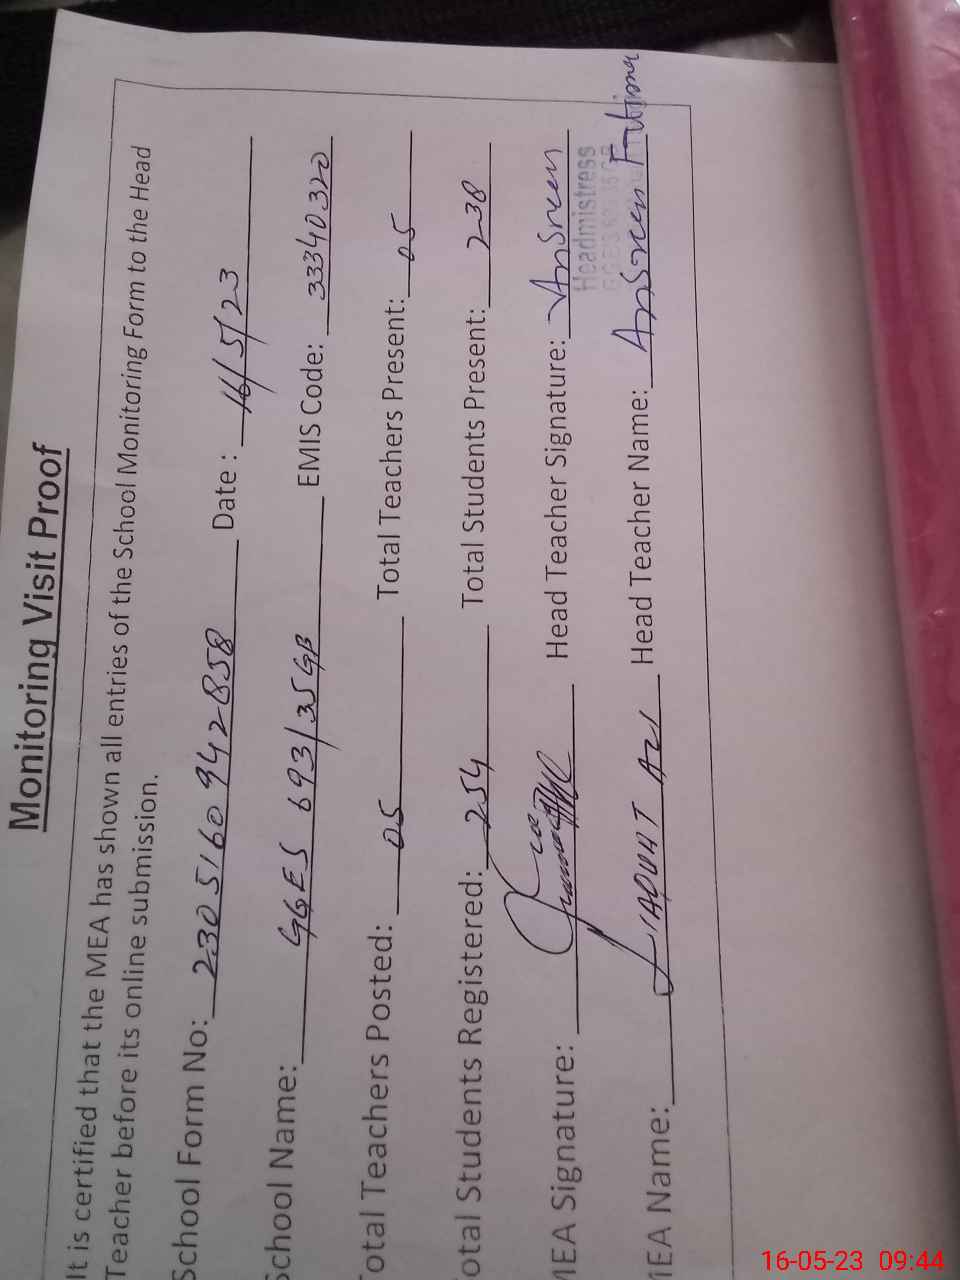 Monitoring Visit Proof
It is certified that the MEA has shown all entries of the School Monitoring Form to the Head
Teacher before its online submission.
School Form No: 2305160942858 Date : 16/5/23
School Name: GGES 693/35GB EMIS Code: 33340320
Total Teachers Posted: 05 Total Teachers Present: 05
Total Students Registered: 254 Total Students Present: 238
MEA Signature: Head Teacher Signature: Ansreen
Headmistress
MEA Name: LIAQUAT ALI Head Teacher Name: Ansreen Fatima
16-05-23 09:44